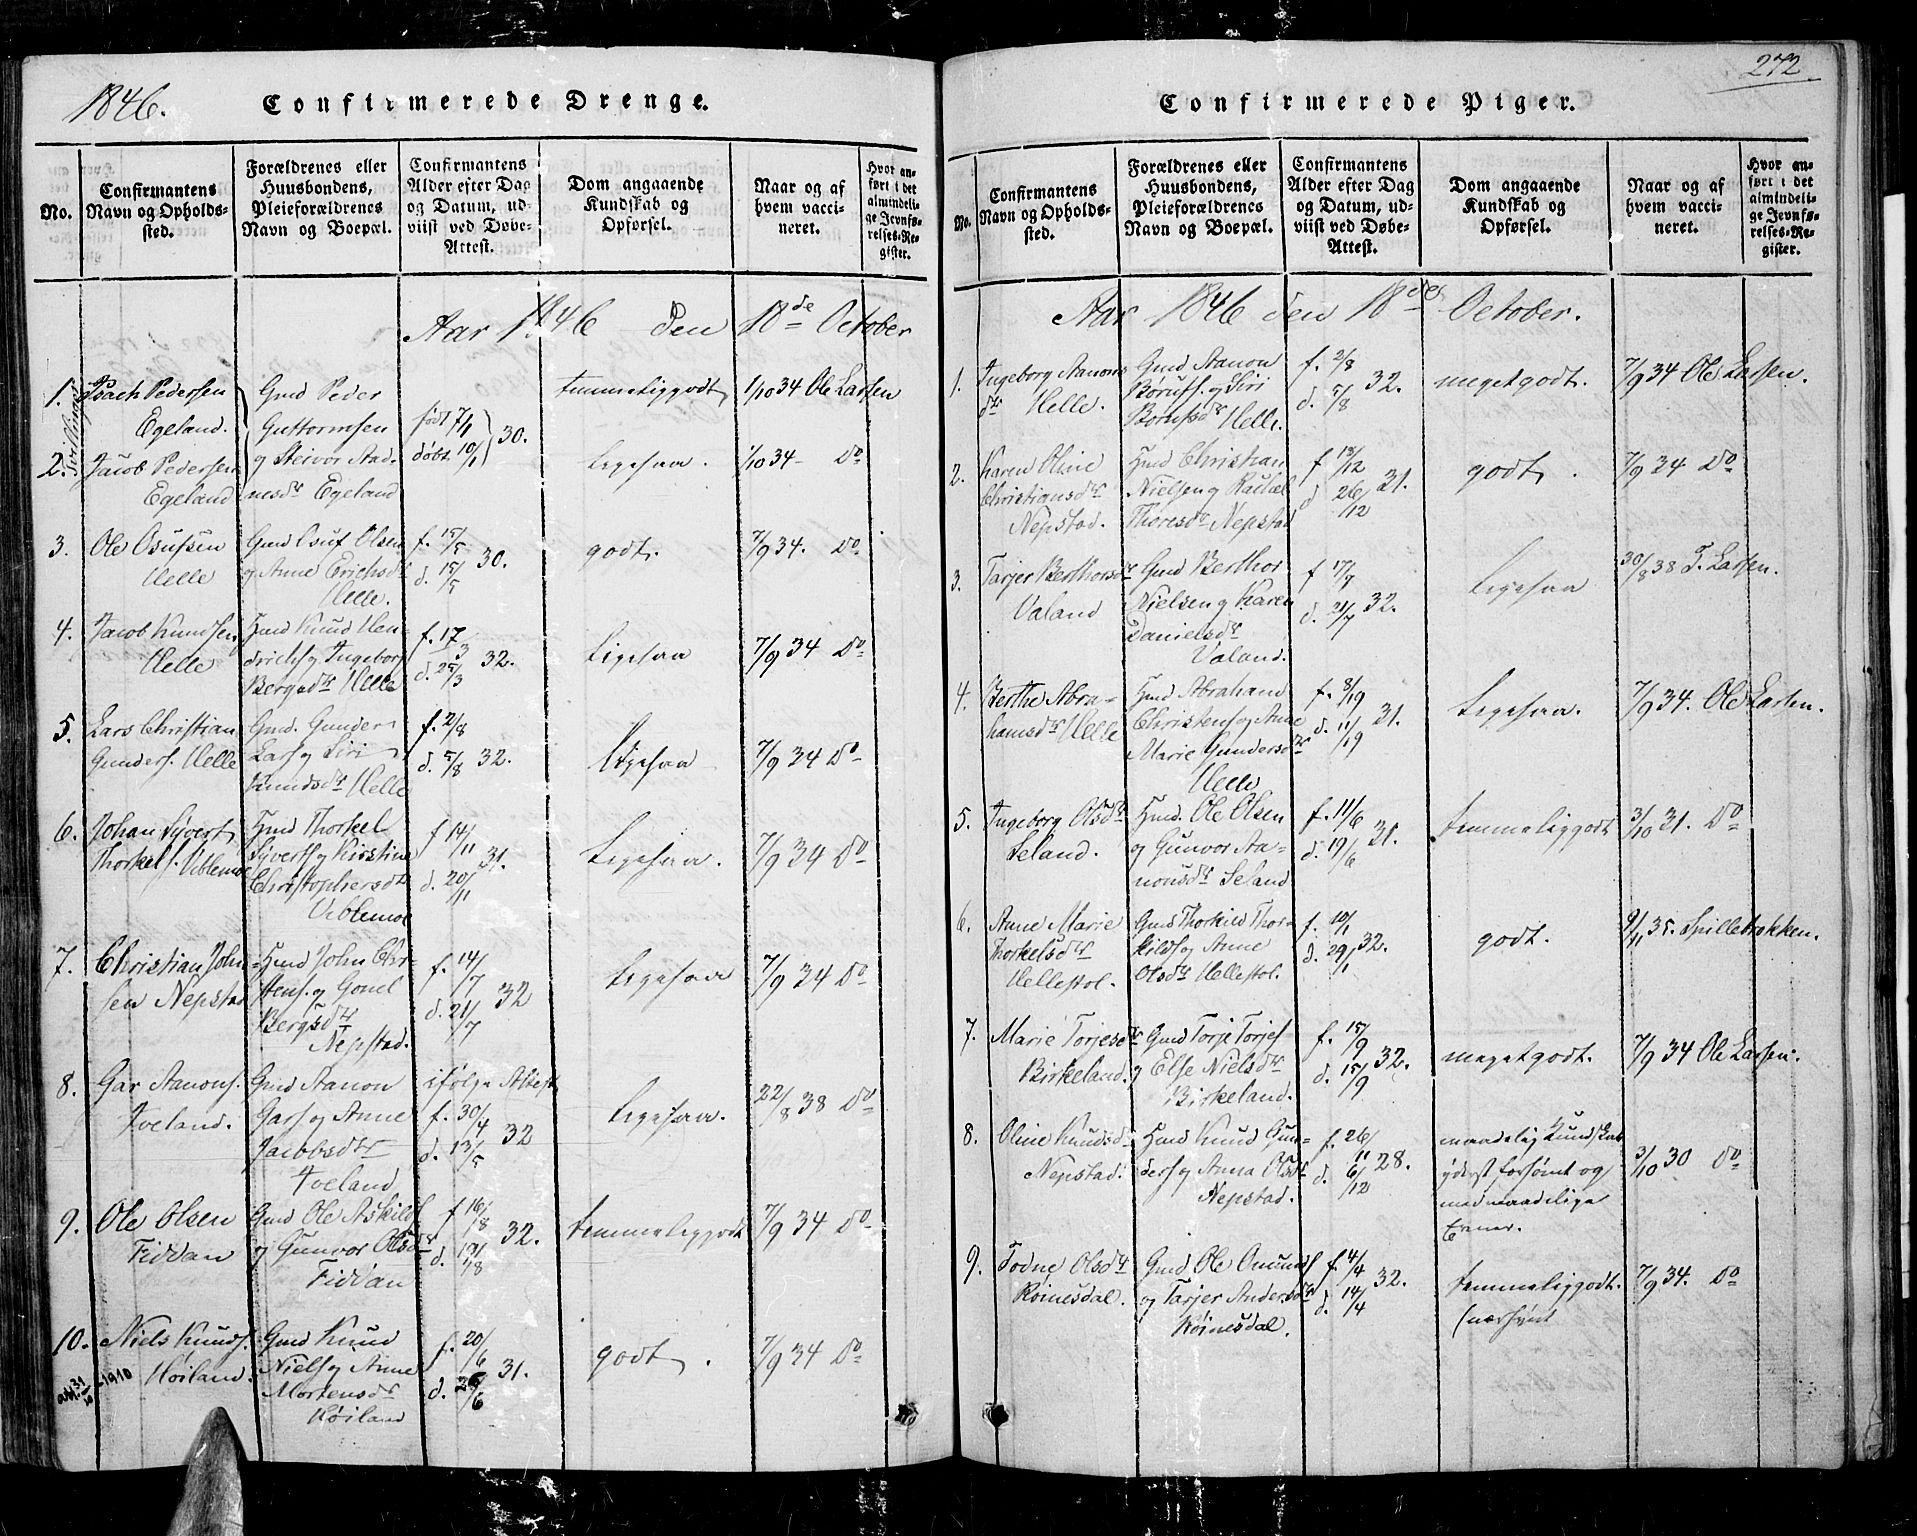 1846.
Confirmerede Drenge.
No.
Confirmantens
Navn og Opholds-
sted.
Forældrenes eller
Huusbondens,
Pleieforældrenes
Navn og Boepæl.
Confirmantens
Alder efter Dag
og Datum, ud-
viist ved Døbe-
Attest.
Dom angaaende
Kundskab og
Opførsel.
Naar og af
hvem vacci-
neret.
Hvor an-
ført i det
almindeli-
ge Jevnfø-
relses-Re-
gister.
Aar 1846 den 18de October
1. Isach Pedersen
Egeland.
Tvillinger
Gmd Peder
Guttormsen
født 7/1
temmeliggodt
1/10 34 Ole Larsen
2. Jacob Pedersen
Egeland
og Steivor Aad-
nesdr Egeland
døbt 10/1 30.
Ligesaa.
1/10 34 - Do
3. Ole Osufsen
Helle
Gmd Osuf Olsen
og Anne Erichsdr
Helle.
f. 15/5
d. 15/5 30.
godt.
7/9 34. Do
4. Jacob Knudsen
Helle
Hmd Knud Hen-
drichs og Ingeborg
Bergsdr Helle
f. 17/3
d. 25/3 32.
Ligesaa
7/9 34 Do
5. Lars Christian
Gunders. Helle
Gmd. Gunder
Lars og Siri
Knudsdr Helle
f. 2/8
d. 5/8 32.
Ligesaa
7/9 34 Do
6. Johan Syvert
Thorkels. Viblemoe
Hmd Thorkel
Syverts og Kirstine
Christophersdr
Viblemoe
f 14/11
d. 20/11 31.
Ligesaa.
7/9 34 Do
7. Christian John-
sen Nepstad
Hmd John Chri-
stens. og Gonel
Bergsdr
Nepstad.
f. 14/7
d. 21/7 32
Ligesaa
7/9 34 Do
8. Gar Aanons.
Tveland.
Gmd Aanon
Gars og Anne
Jacobsdr
Tveland
ifølge Attest
f. 30/4
d. 13/5 32
Ligesaa.
22/8 38 Do
9. Ole Olsen
Fiddan
Gmd Ole Askilds
og Gunvor Olsdr
Fiddan
f 16/8
d. 19/8 32.
temmeliggodt
7/9 34 Do
10. Niels Knuds.
Høiland.
Gmd Knud
Niels og Anne
Mortensdr
Høiland
f. 20/6
d. 26/6 31.
godt.
7/9 34 Do
1910
272
Confirmerede Piger.
No.
Confirmantens
Navn og Opholds-
sted.
Forældrenes eller
Huusbondens,
Pleieforældrenes
Navn og Boepæl.
Confirmantens
Alder efter Dag
og Datum, ud-
viist ved Døbe-
Attest.
Dom angaaende
Kundskab og
Opførsel.
Naar og af
hvem vacci-
neret.
Hvor an-
ført i det
almindeli-
ge Jevnfø-
relses-Re-
gister.
Aar 1846 den 18de October.
1. Ingeborg Aanons
dr Helle.
Gmd Aanon
Børufs. og Siri
Børufsdr Helle.
f. 2/8
d. 5/8 32.
megetgodt.
7/9 34 Ole Larsen.
2. Karen Oline
Christiansdr
Nepstad.
Hmd Christian
Nielsen og Rachel
Thoresdr Nepstad
f 13/12
d 26/12 31.
godt.
7/9 34 Do
3. Tarjer Berthorsdr
Valand
Gmd Berthor
Nielsen og Karen
Danielsdr
Valand.
f 17/7
d. 21/7 32.
Ligesaa
30/8 38 T. Larsen.
4. Berthe Abra-
hamsdr Helle
Hmd Abraham
Christens og Anne
Marie Gundersdr
Helle
f. 8/19
d. 11/19 31.
Ligesaa.
7/9 34. Ole Larsen.
5. Ingeborg Olsdr
Seland.
Hmd. Ole Olsen
og Gunvor Aa-
nonsdr Seland
f. 11/6
d. 19/6 31.
temmeliggodt
3/10 31. Do
6. Anne Marie
Thorkelsdr
Hellestol.
Gmd Thorkild Thor-
kilds og Anne
Olsdr Hellestol.
f. 10/1
d. 29/1 32.
godt.
9/11 35. Spillebrokken.
7. Marie Torjesdr
Birkeland.
Gmd Torje Torjes
og Else Nielsdr
Birkeland.
f. 15/9
d. 15/9 32.
megetgodt.
7/9 34 Ole Larsen.
8. Oline Knudsdr
Nepstad.
Hmd Knud Gun-
ders og Anna Olsdr
Nepstad.
f. 26/11
d. 6/12 28.
maadelig Kundskab
yderst forsømt og
med maadelige
Evner.
3/10 30 Do
9. Todne Olsdr
Røinesdal.
Gmd Ole Omunds
og Tarjer Andersdr
Røinesdal.
f. 4/4
d. 14/4 32.
temmeliggodt.
(nærsynt
7/9 34. Do